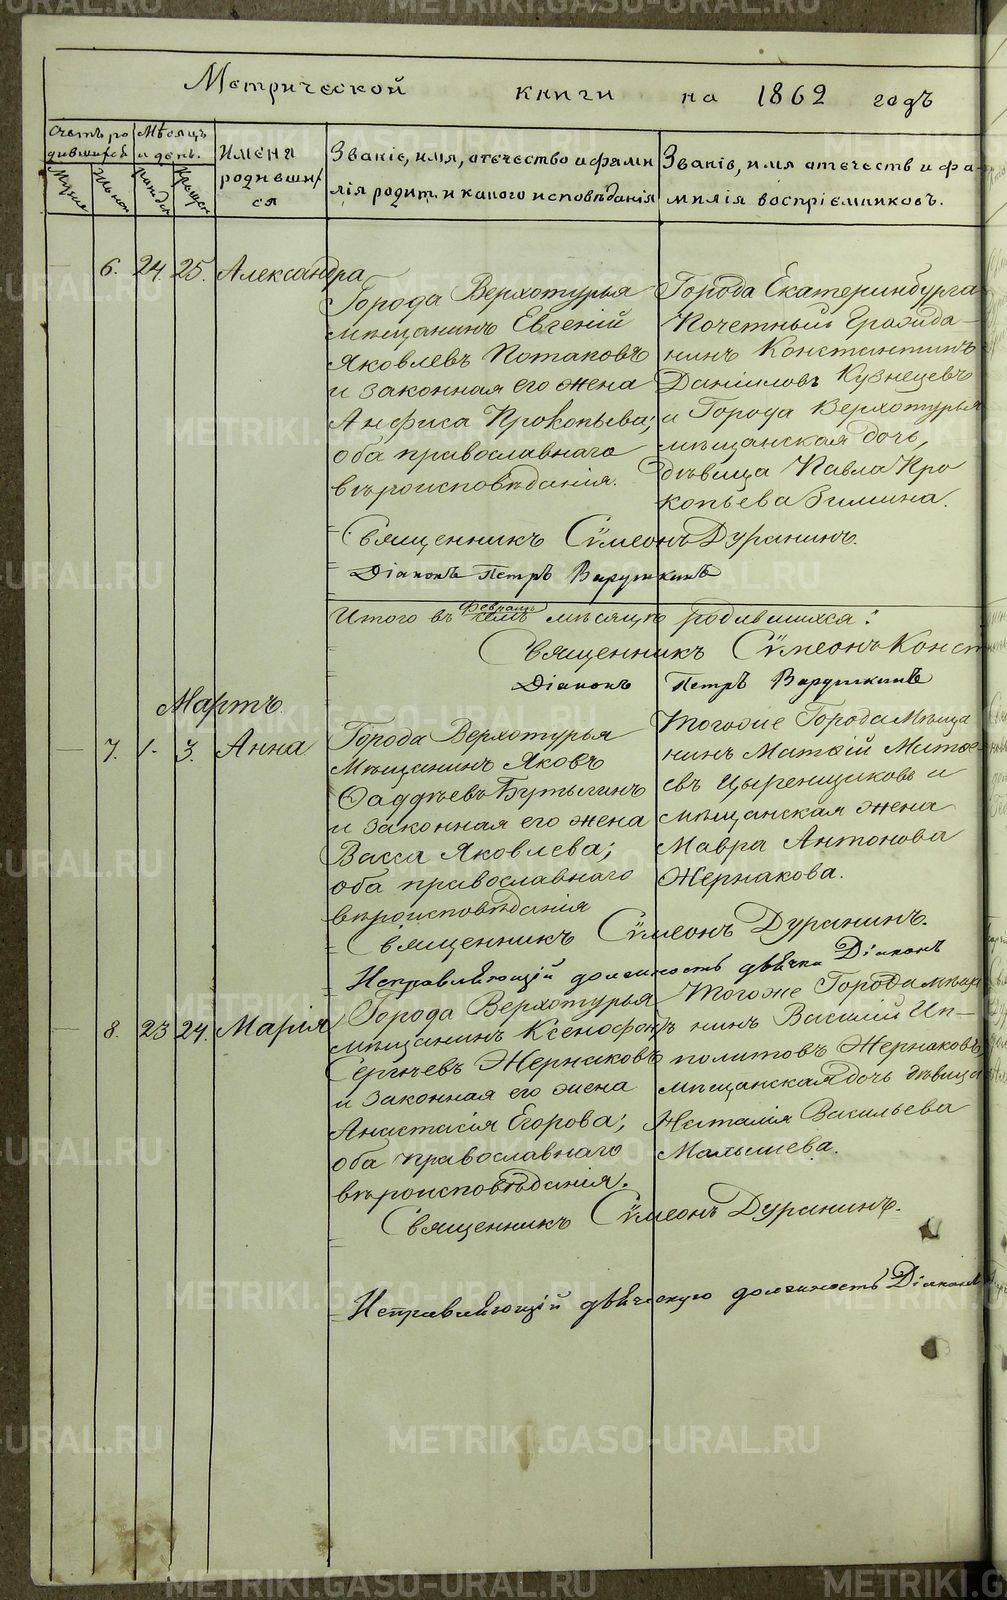 Метрической книги на 1862 годъ
Счетъ ро
дившихся
Мужеска
Женска
Мѣсяцъ
и день.
рожден
крещен
Имена
родивших
ся
Званіе, имя, отечество и фами
лія родит. и какого исповѣданія
Званіе, имя отечеств и фа-
милія воспріемниковъ.
6. 24. 25. Александра
Города Верхотурья
мѣщанинъ Евгеній
Яковлевъ Потаповъ
и законная его жена
Анфиса Прокопьева;
оба православнаго
вѣроисповѣданія.
Города Екатеринбурга
Почетный Гражда-
нинъ Константинъ
Даніиловъ Кузнецевъ
и Города Верхотурья
мѣщанская дочь,
дѣвица Павла Про
копьева Зимина.
Священникъ Сѵмеонъ Дуранинъ.
Діаконъ Петръ Варушкинъ
Итого въ Февралѣ семъ мѣсяцѣ родившихся:
Священникъ Сѵмеонъ Конст
Діаконъ Петръ Варушкинъ
Мартъ
7. 1. 3. Анна
Города Верхотурья
Мѣщанинъ Яковъ
Ѳаддѣевъ Бутыгинъ
и законная его жена
Васса Яковлева;
оба православнаго
вѣроисповѣданія
Тогоже Города Мѣща
нинъ Матѳій Матѳе-
евъ Цыренщиковъ и
мѣщанская жена
Мавра Антонова
Жернакова.
Священникъ Сѵмеонъ Дуранинъ.
Исправляющій должность дьячка Діаконъ
8. 23 24. Марія
Города Верхотурья
мѣщанинъ Ксенофонтъ
Сергѣевъ Жернаковъ
и законная его жена
Анастасія Егорова;
оба православнаго
вѣроисповѣданія.
Тогоже Города мѣща
нинъ Василій Ип-
политовъ Жернаковъ
мѣщанская дочь дѣвица
Наталія Васильева
Малышева.
Священникъ Сѵмеонъ Дуранинъ.
Исправляющій дьяческую должность Діаконъ